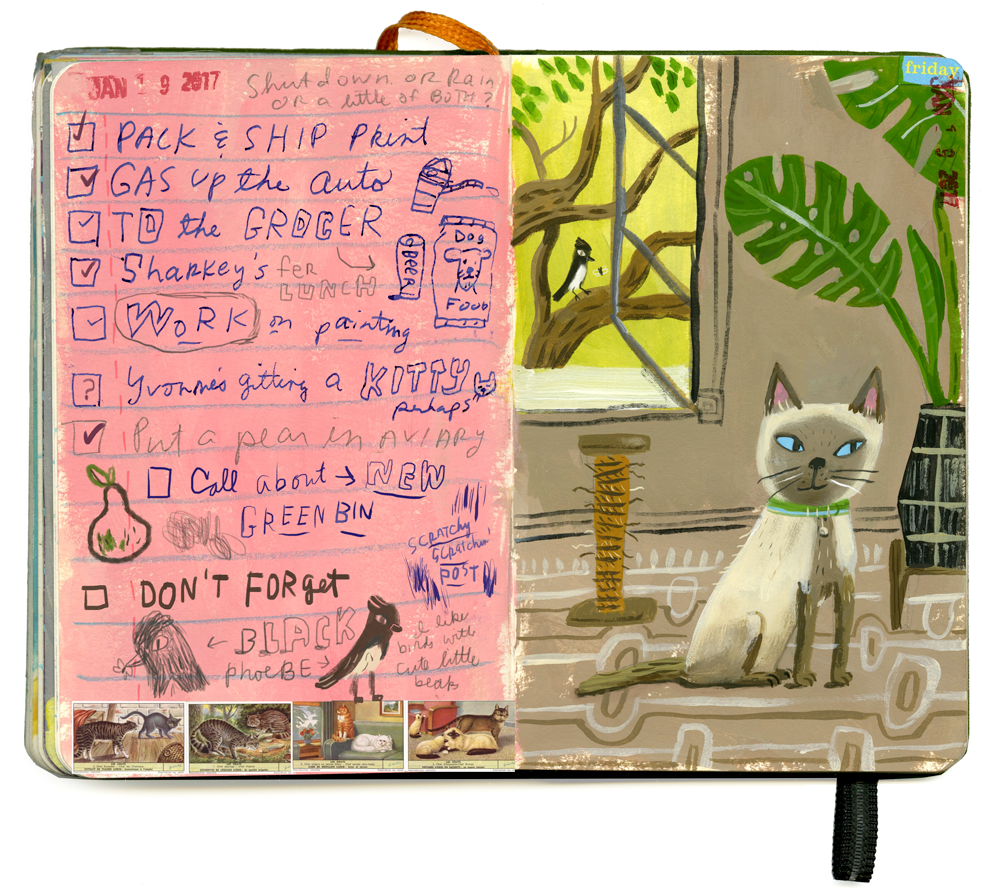 JAN 19 2017
Shutdown or Rain
OR a little of BOTH?
PACK & SHIP Print
GAS up the auto
TO the GROCER
Sharkey's fer
LUNCH
BEER
Dog
FOOD
WORK on painting
? Yvonne's gitting a KITTY
perhaps
Put a pear in AVIARY
Call about → NEW
GREEN BIN
SCRATCHY
SCRATCHIN'
POST
DON'T FORget
← BLACK
phoeBE →
I like
birds with
cute little
beaks
friday